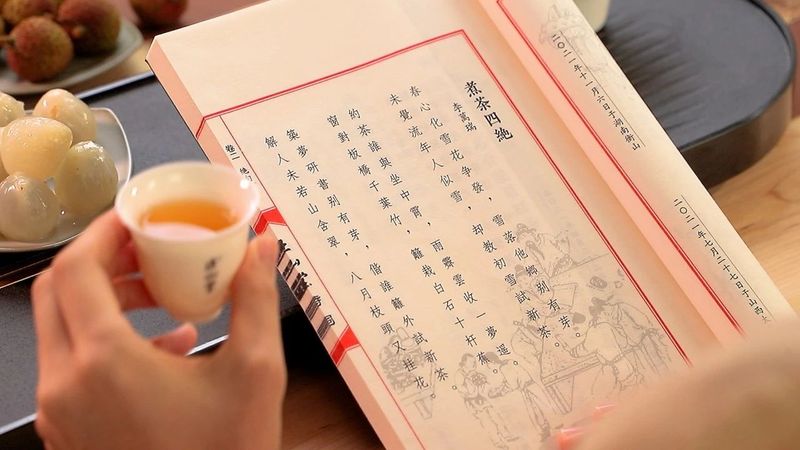 二〇二一年十一月六日于湖南衡山
二〇二一年七月二十七日于山西
煮茶四絶
李萬瑞
春心化雪花争發，雪落他鄉别有芽。
未覺流年人似雪，却教初雪試新茶。
約茶誰與坐中宵，雨霽雲收一夢遥。
窗對板橋千葉竹，籬栽白石十杆蕉。
築夢研書别有芽，八月枝頭又挂花。
解人未若山含翠，偕誰籬外試新茶。
卷二